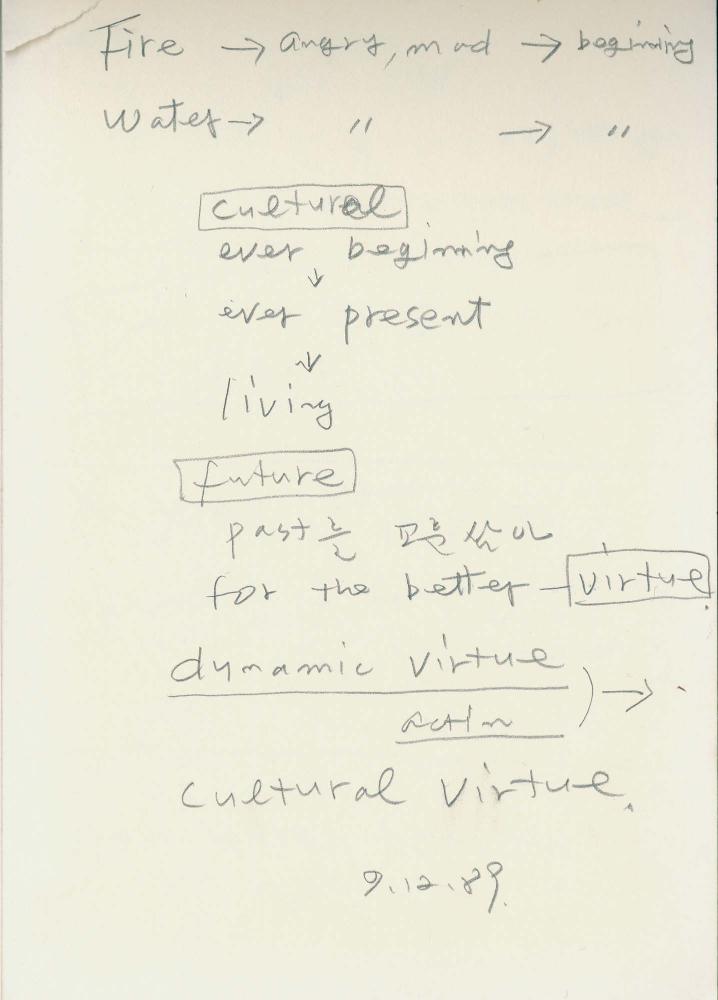 Fire → angry, mad → beginning
Water → 〃 → 〃
cultural
ever beginning
↓
ever present
↓
living
future
past를 교훈삼아
for the better — virtue.
dynamic virtue
action ) →
cultural virtue.
9.12.89.